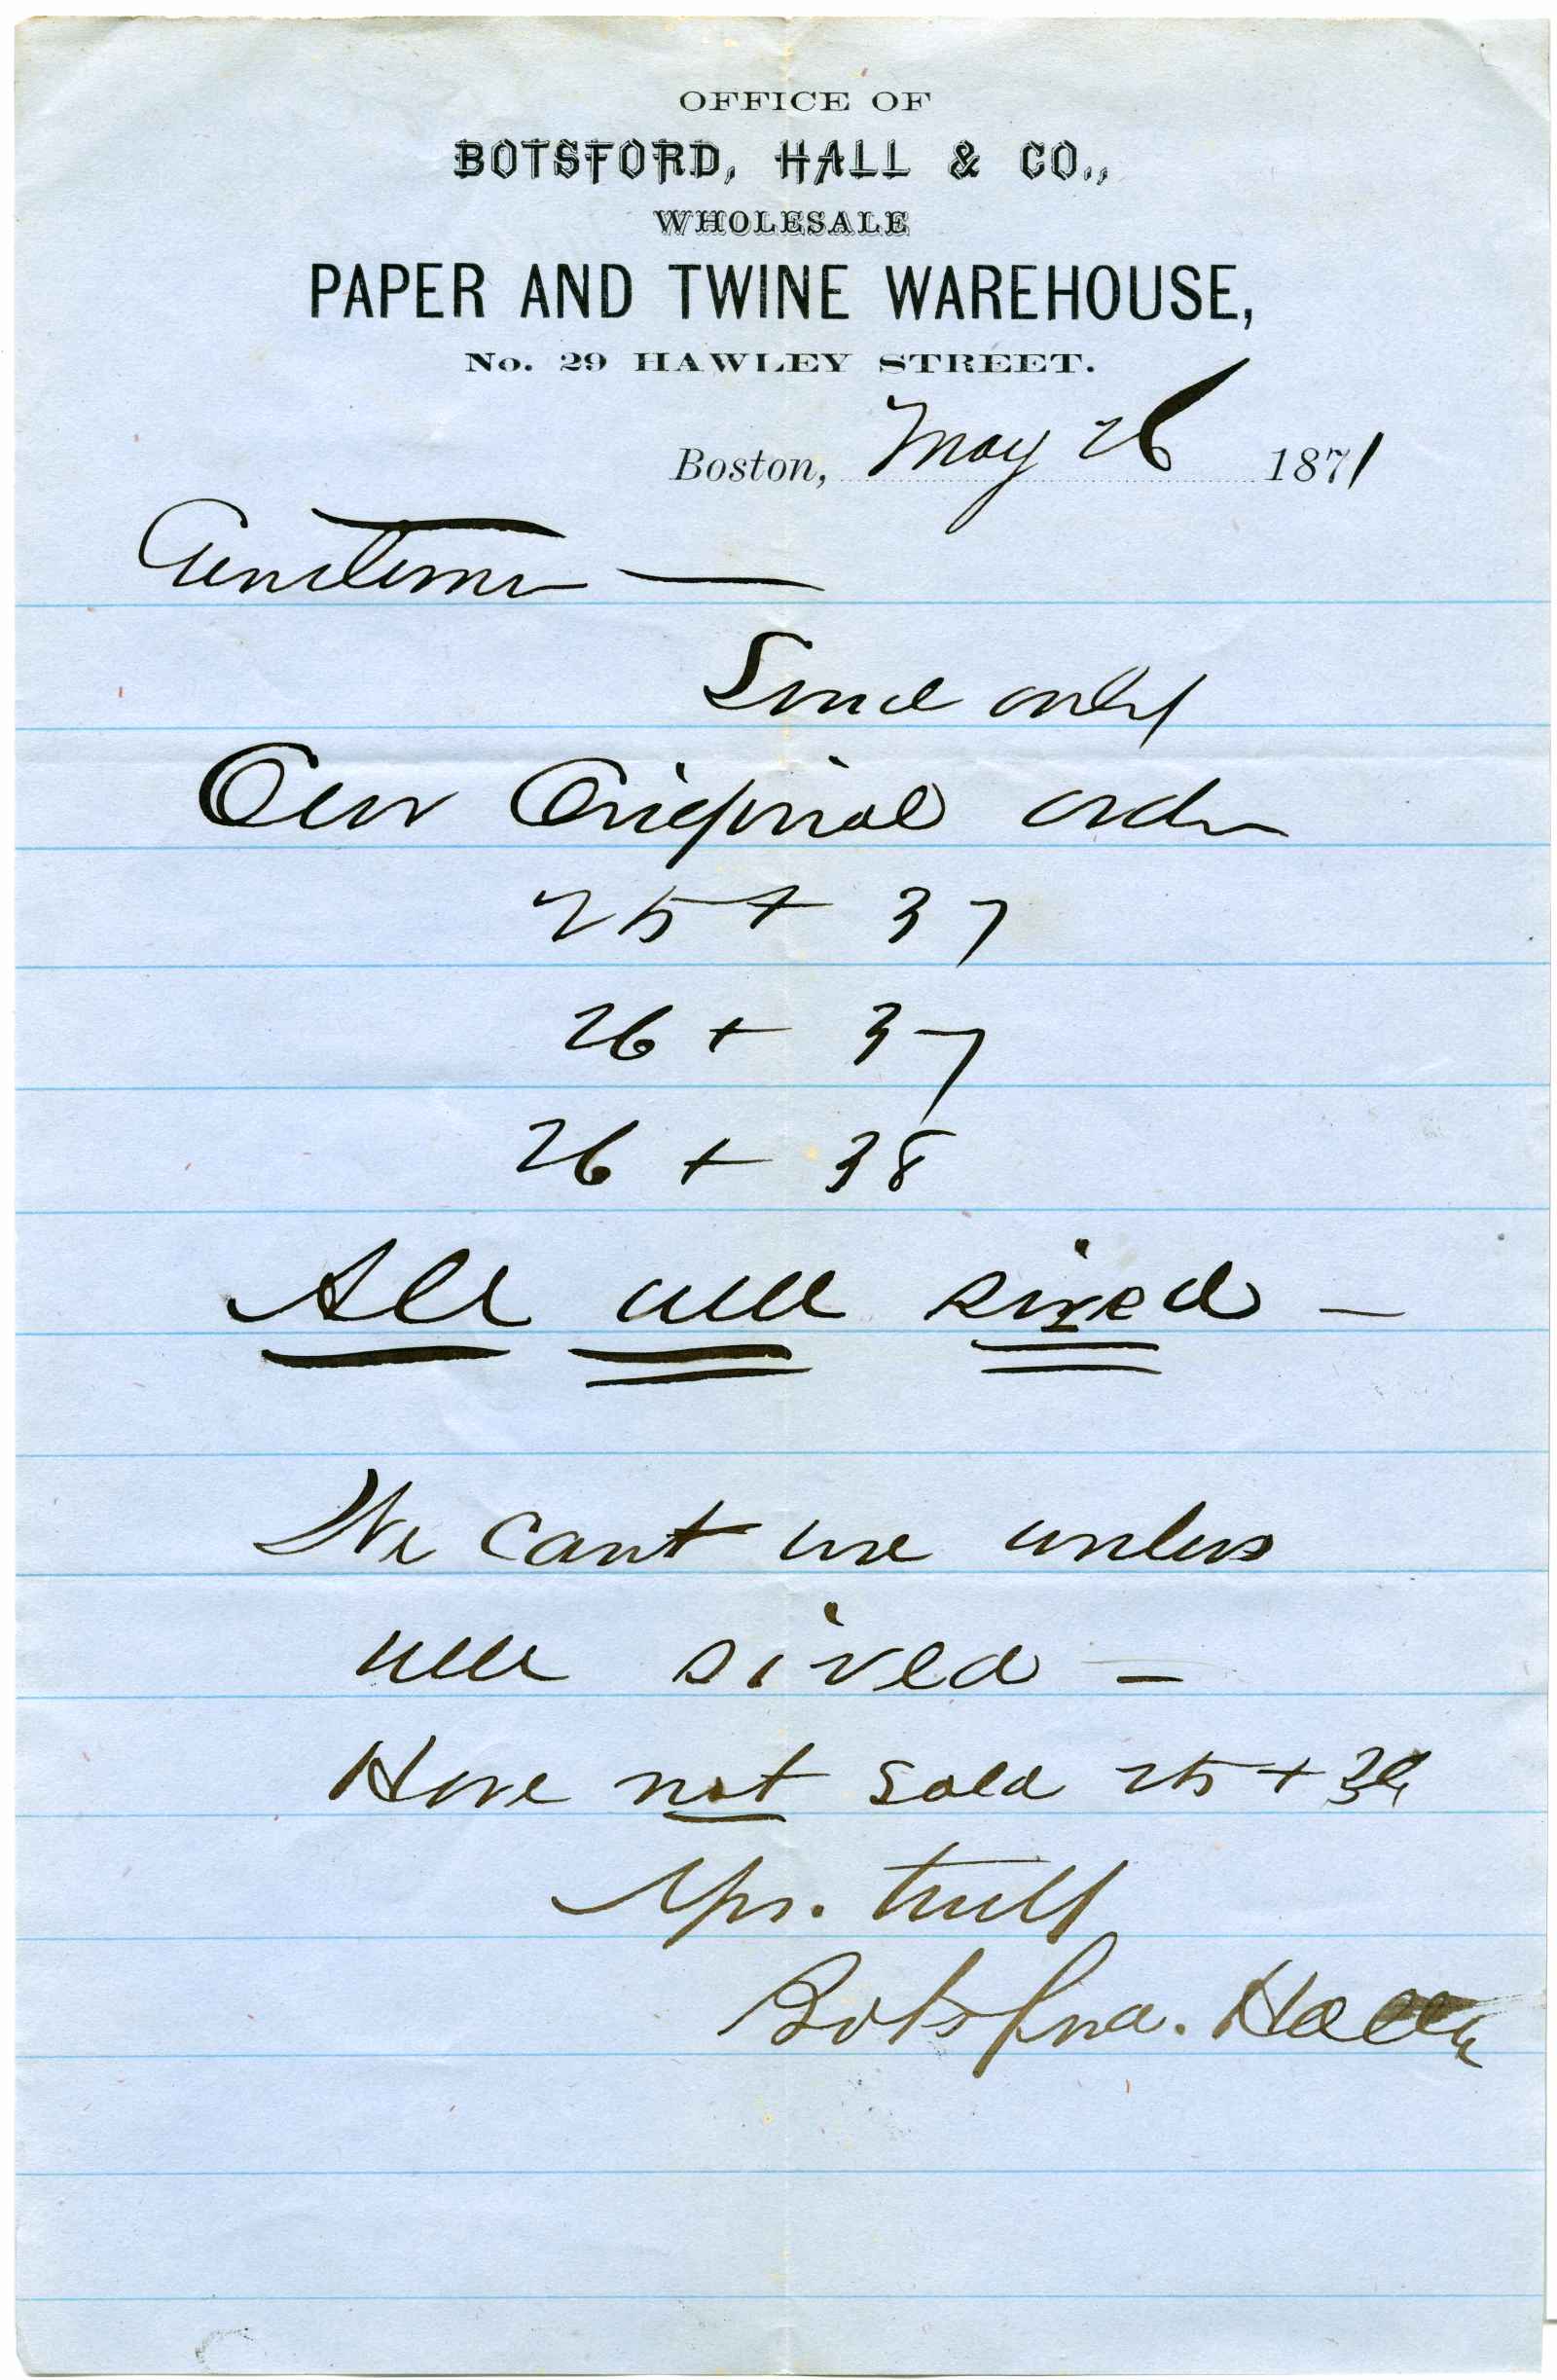 OFFICE OF
BOTSFORD, HALL & CO.,
WHOLESALE
PAPER AND TWINE WAREHOUSE,
No. 29 HAWLEY STREET.
Boston, May 26 1871
Gentlemen —
Send only
Our Original order
25 + 37
26 + 37
26 + 38
All well sized —
We cant use unless
well sized —
Have not sold 25 +
Yrs. truly
Botsford. Hall